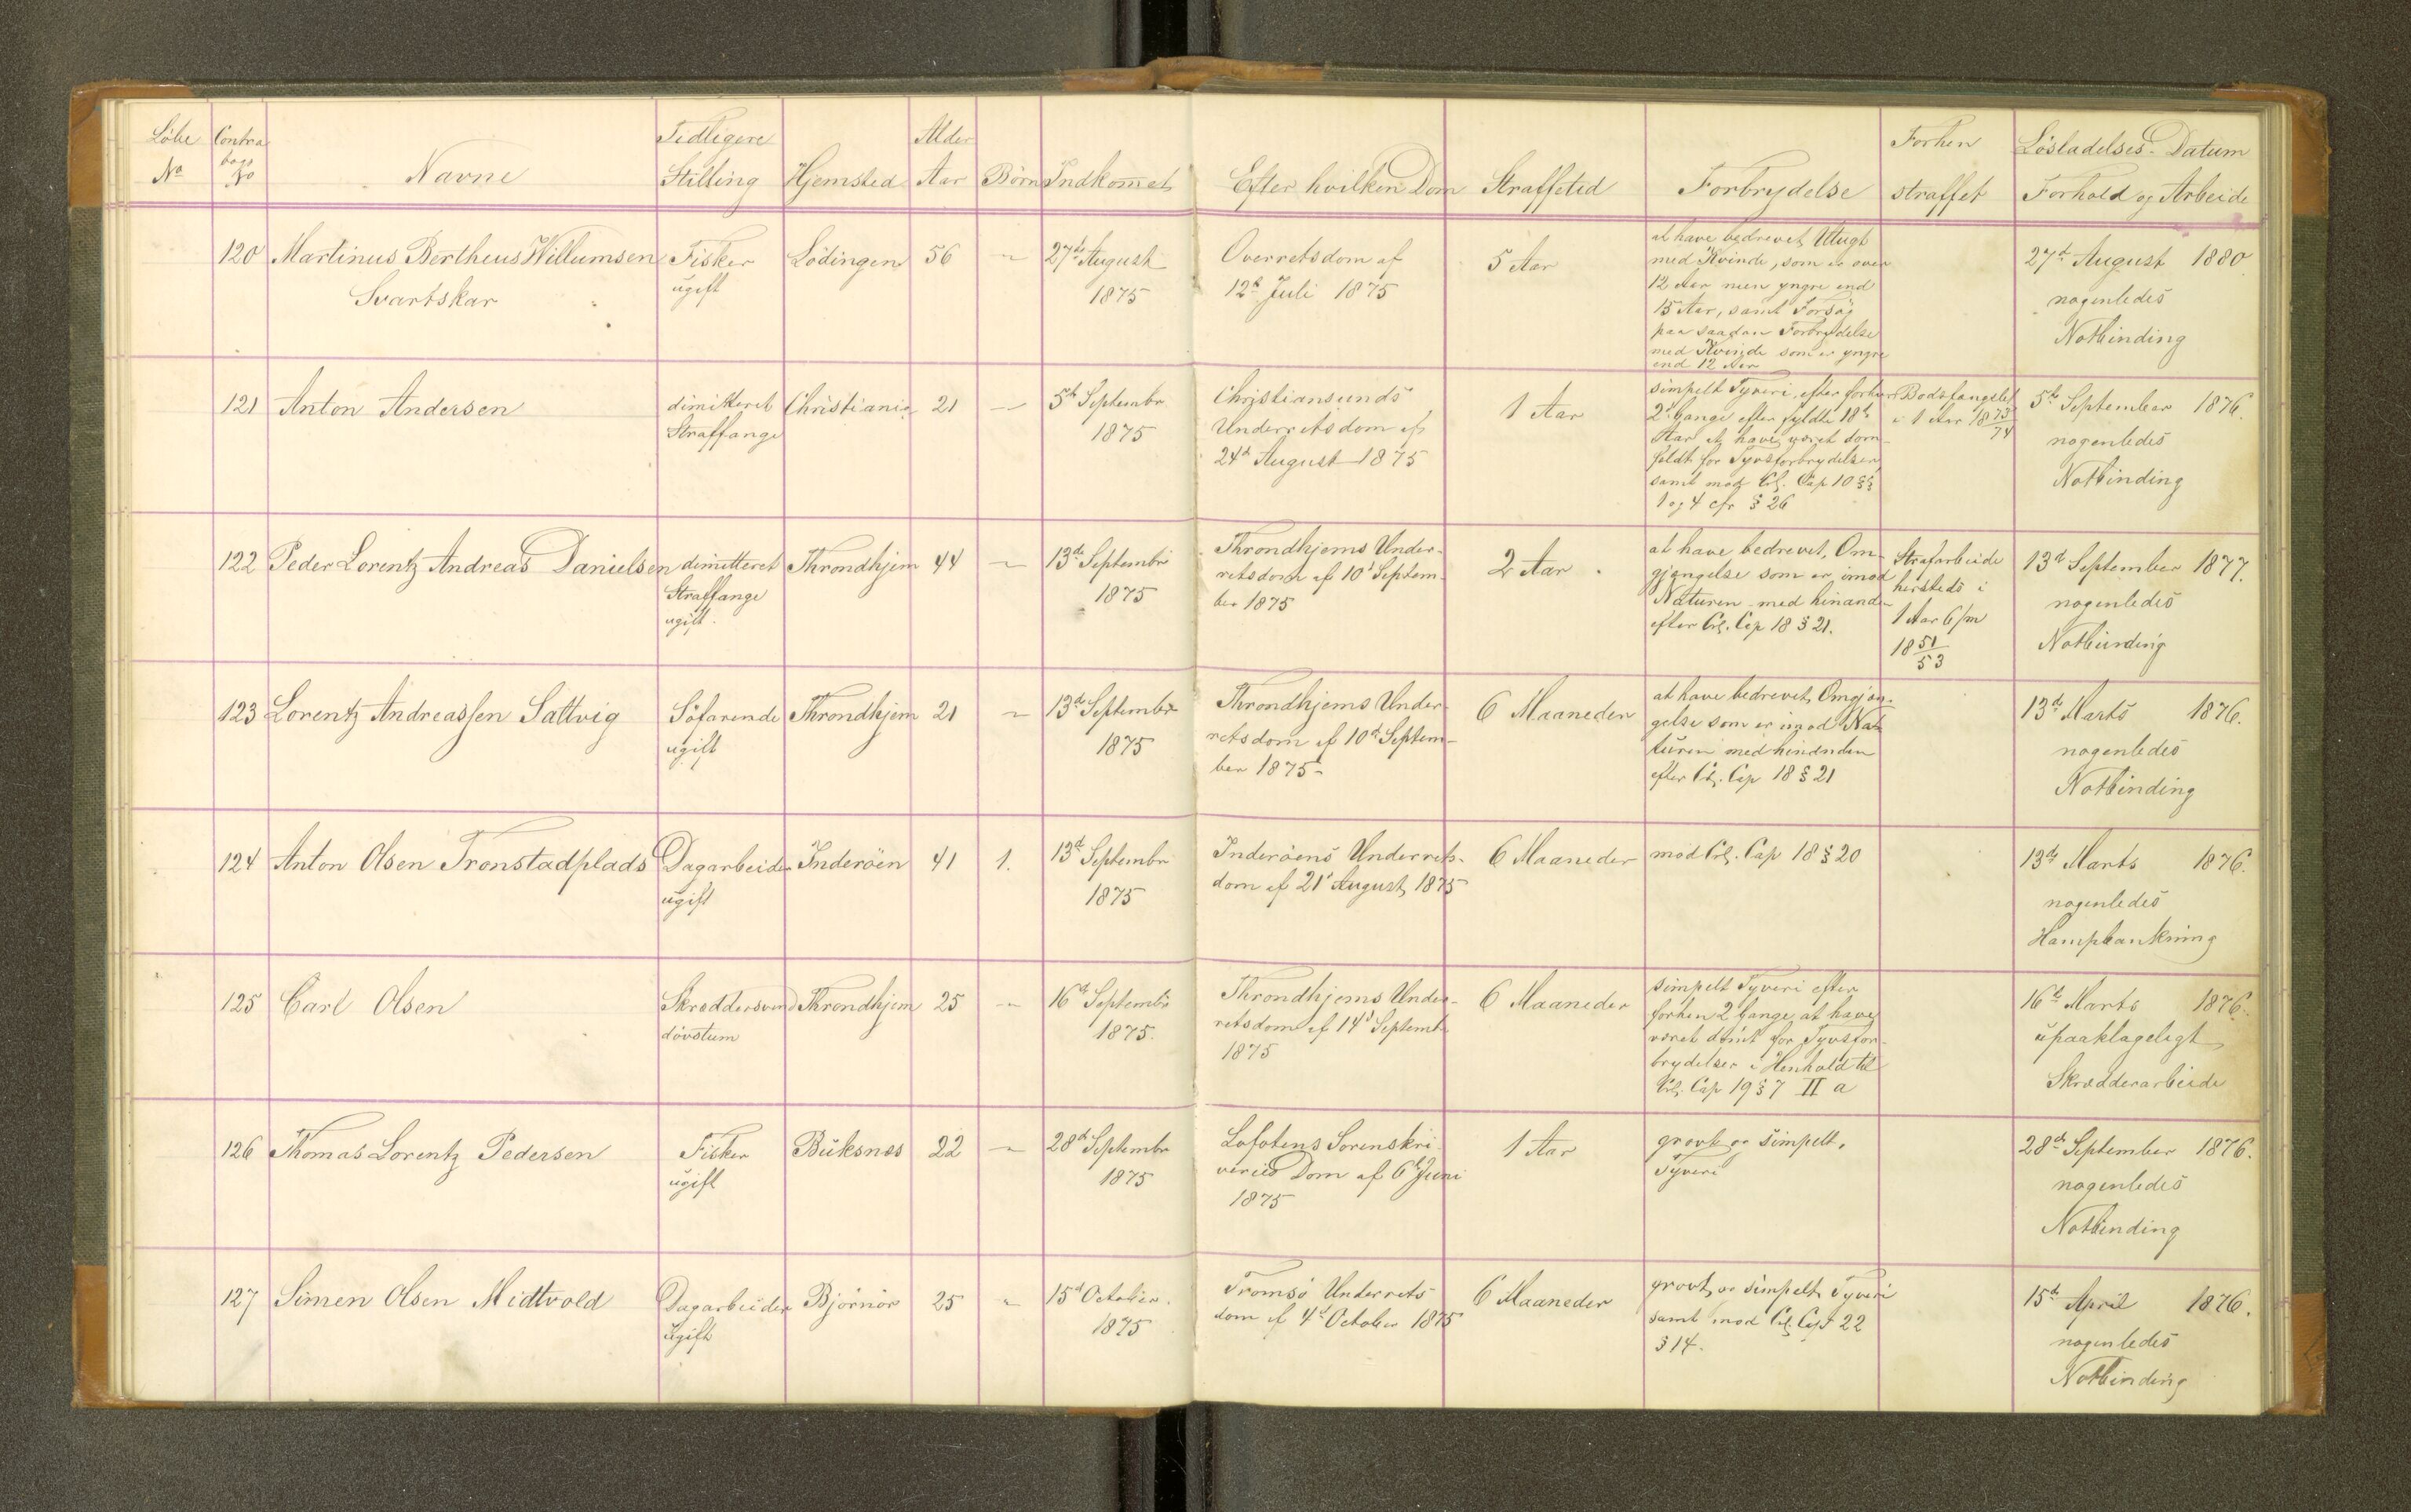 Löbe No
Contra bogs No
Navne
Tidligere Stilling
Hjemsted
Alder Aar
Börn
Indkommet
Efter hvilken Dom
Straffetid
Forbrydelse
Forhen straffet
Lösladelses-Datum
Forhold og Arbeide
120
Martinus Bertheus Willumsen
Svartskar
Fisker
ugift
Lödingen
56
—
27de August
1875
Overretsdom af
12te Juli 1875
5 Aar
at have bedrevet Utugt
med Kvinde, som er over
12 Aar men yngre end
15 Aar, samt Forsög
paa saadan Forbrydelse
med Kvinde som er yngre
end 12 Aar
27de August 1880
nogenledes
Notbinding
121
Anton Andersen
dimitteret
Straffange
Christiania
21
—
5te Septembr
1875
Christiansunds
Underretsdom af
24de August 1875
1 Aar
simpelt Tyveri, efter forhen
2 Gange efter fyldte 18de
Aar at have været dom-
fældt for Tyvsforbrydelser,
samt mod Crl. Cap 10 §§
1 og 4 cfr § 26
Bodsfængslet
i 1 Aar 1873/74
5te September 1876.
nogenledes
Notbinding
122
Peder Lorentz Andreas Danielsen
dimitteret
Straffange
ugift.
Throndhjem
44
—
13de Septembr
1875
Throndhjems Under-
retsdom af 10d Septem-
ber 1875
2 Aar.
at have bedrevet, Om-
gjængelse som er imod
Naturen med hinanden
efter Crl. Cap 18 § 21.
Strafarbeide
hersteds i
1 Aar 6/m
1851/53
13de September 1877.
nogenledes
Notbinding
123
Lorentz Andreassen Saltvig
Söfarende
ugift
Throndhjem
21
—
13de Septembr
1875
Throndhjems Under-
retsdom af 10de Septem-
ber 1875
6 Maaneder
at have bedrevet, Omgjæn-
gelse som er imod Na-
turen med hinanden
efter Crl. Cap 18 § 21
13de Marts 1876.
nogenledes
Notbinding
124
Anton Olsen Tronstadplads
Dagarbeider
ugift
Inderöen
41
1.
13de Septembr
1875
Inderöens Underrets-
dom af 21d August 1875
6 Maaneder
mod Crl. Cap 18 § 20
13de Marts 1876.
nogenledes
Hampbankning
125
Carl Olsen
Skræddersvend
dövstum
Throndhjem
25
—
16de Septembr
1875.
Throndhjems Under-
retsdom af 14d Septembr
1875
6 Maaneder
simpelt Tyveri efter
forhen 2 Gange at have
været dömt for Tyvsfor-
brydelser i Henhold til
Crl. Cap 19 § 7 II a
16de Marts 1876.
upaaklageligt
Skrædderarbeide
126
Thomas Lorentz Pedersen
Fisker
ugift
Buksnæs
22
—
28de Septembr
1875
Lofotens Sorenskri-
veries Dom af 6te Juni
1875
1 Aar
grovt og simpelt
Tyveri
28de September 1876.
nogenledes
Notbinding
127
Simen Olsen Midtvold
Dagarbeider
ugift
Björnör
25
—
15de October.
1875
Tromsö Underrets
dom af 4de October 1875
6 Maaneder
grovt og simpelt Tyveri
samt mod Crl. Cap 22
§ 14.
15de April 1876.
nogenledes
Notbinding